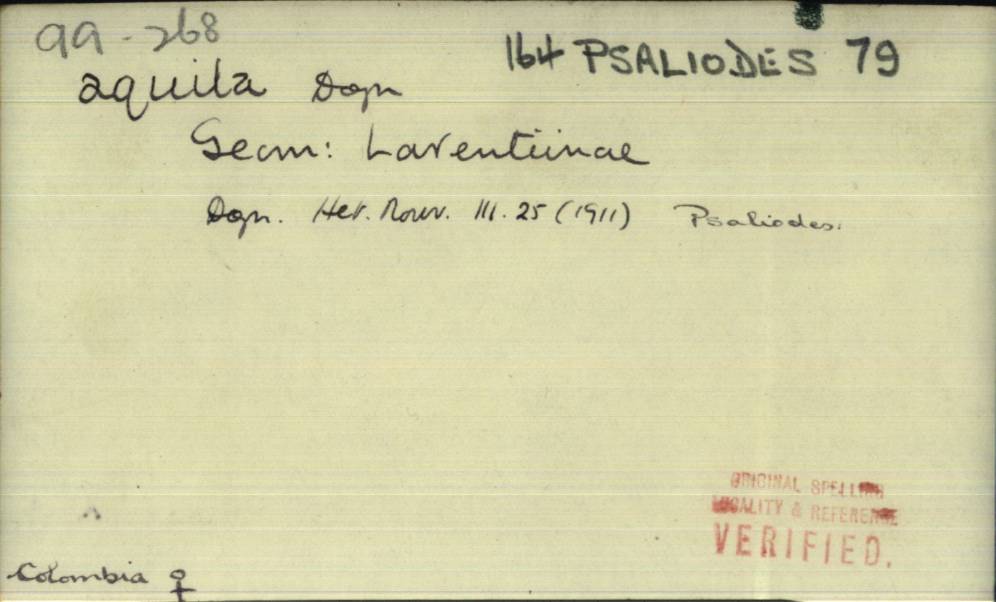 99-268
164 PSALIODES 79
aquila Dogn
Geom: Larentiinae
Dogn. Het. Nouv. III. 25 (1911) Psaliodes.
ORIGINAL SPELLING
LOCALITY & REFERENCE
VERIFIED.
Colombia ♀